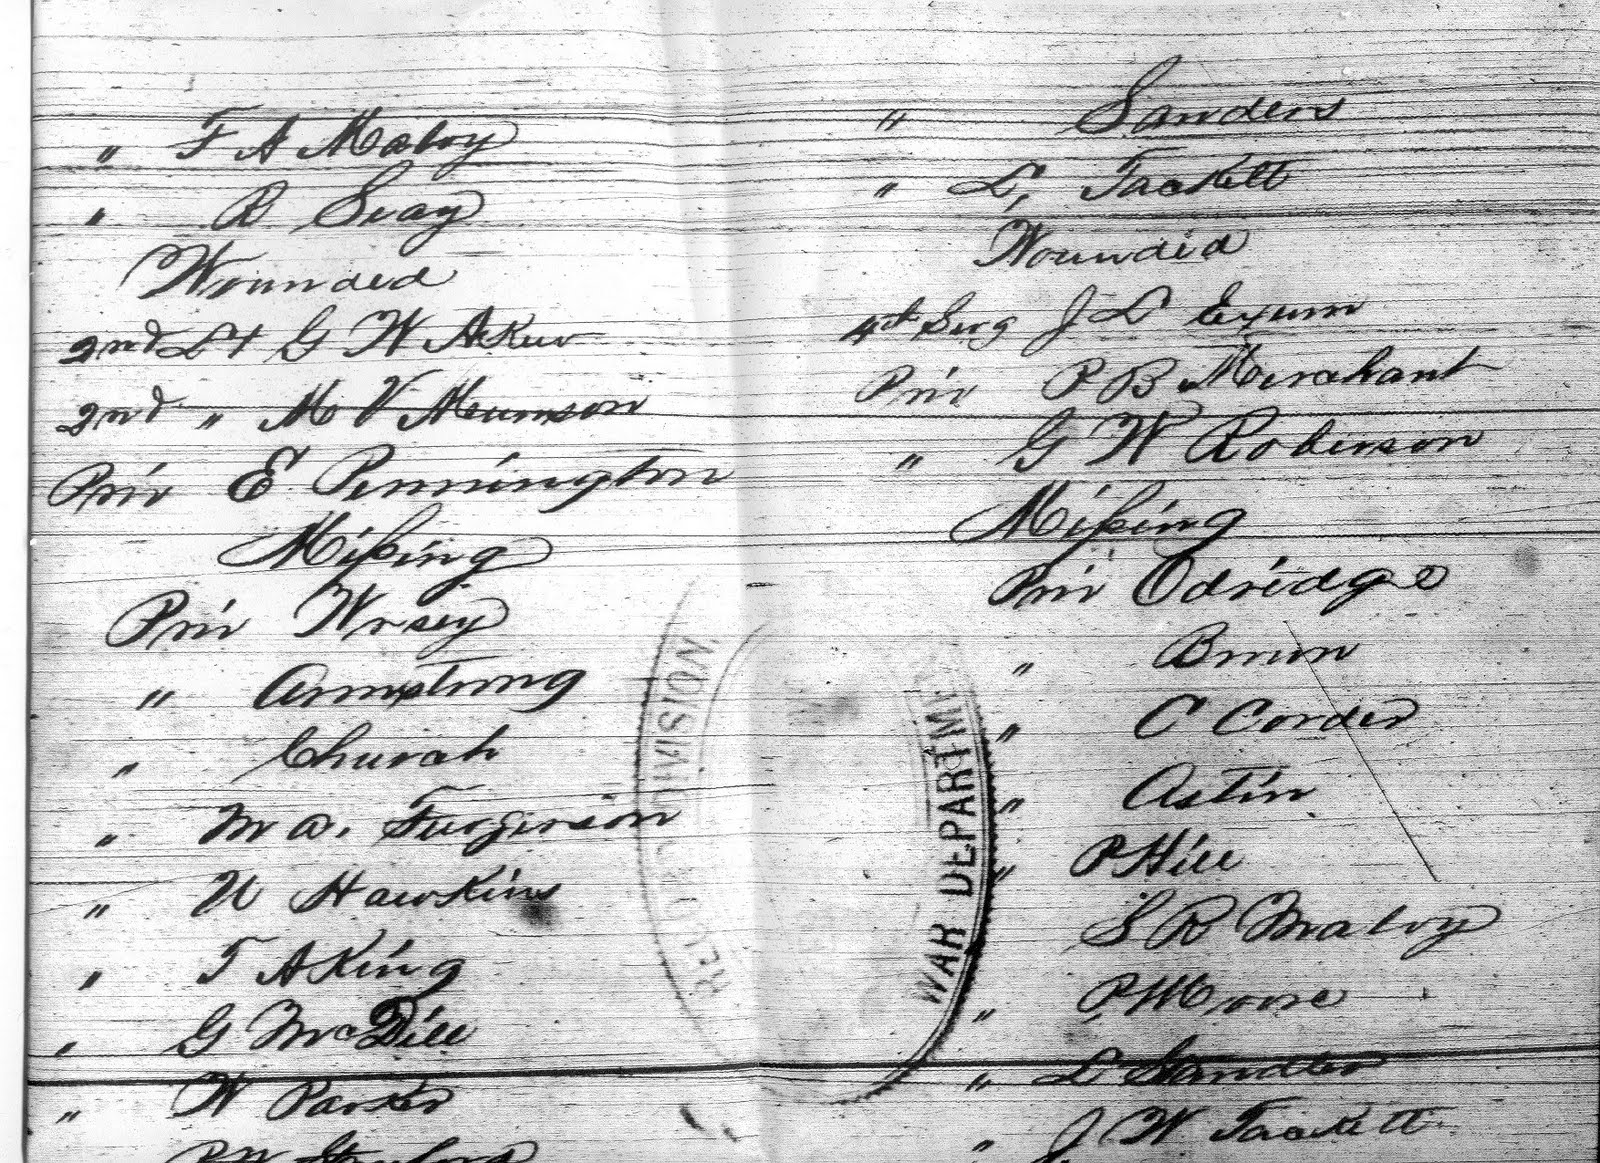 " F A Maloy
" R Seay
Wounded
2nd Lt G W Aker
2nd " M V Munson
Priv E Pennington
Missing
Priv
" Armstrong
" Church
" M A. Furgerson
" U Hawkins
" T A King
" G McDill
" W Parker
" Sanders
" L, Tackett
Wounded
4th Serg J L Exum
Priv P B Merchant
" G W Roberson
Missing
Priv Odridge
"
" C Corder
" Astin
" P Hill
S R Maloy
" P Moore
" L Sandler
" J W Tackett
DIVISION,
WAR DEPARTM